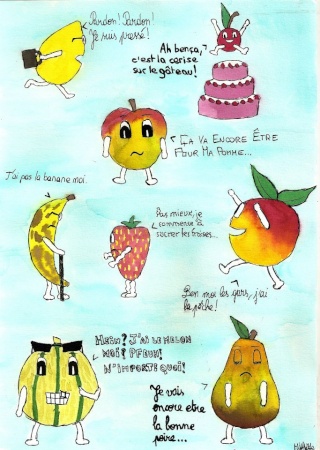 Pardon! Pardon!
Je suis pressé!
Ah bença,
c'est la cerise
sur le gâteau!
ÇA VA ENCORE ÊTRE
POUR MA POMME...
J'ai pas la banane moi.
Pas mieux, je
commence à
sucrer les fraises...
Ben moi les gars, j'ai
la pêche!
HEIN? J'AI LE MELON
MOI? PFEUH!
N'IMPORTE QUOI!
Je vais
encore etre
la bonne
poire...